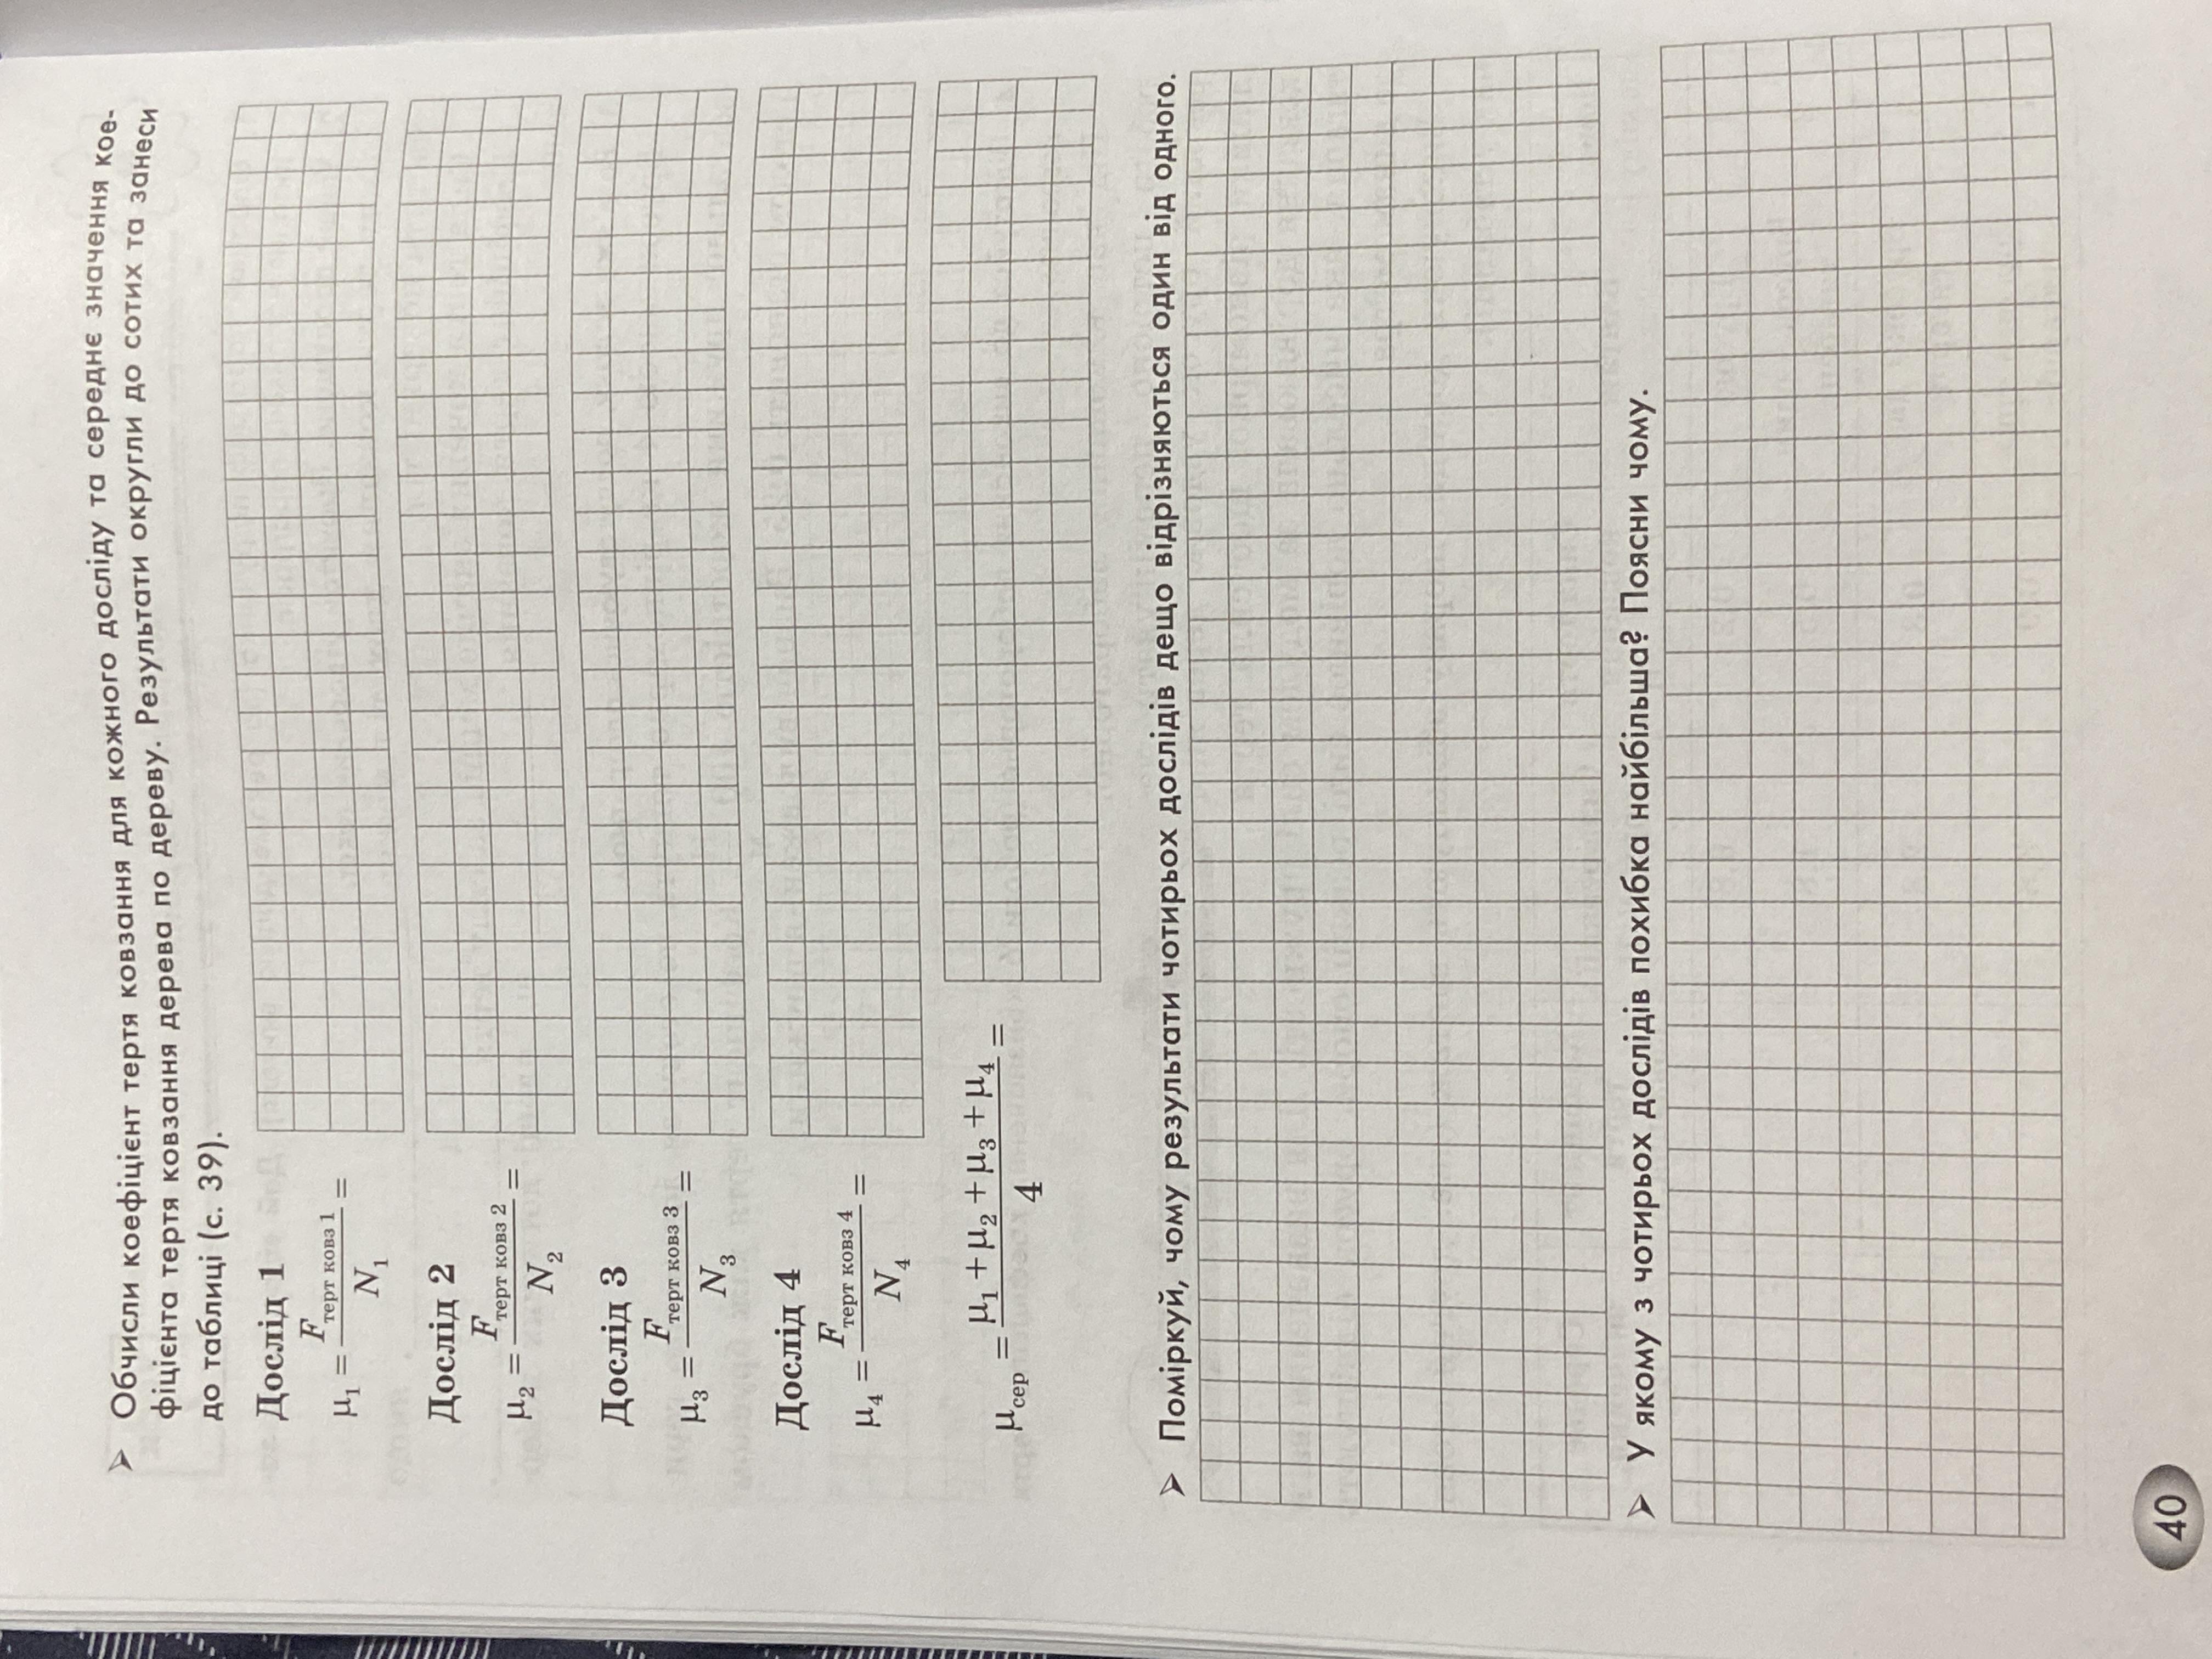 ➢ Обчисли коефіцієнт тертя ковзання для кожного досліду та середнє значення кое-
фіцієнта тертя ковзання дерева по дереву. Результати округли до сотих та занеси
до таблиці (с. 39).
Дослід 1
μ₁ = F терт ковз 1 / N₁ =
Дослід 2
μ₂ = F терт ковз 2 / N₂ =
Дослід 3
μ₃ = F терт ковз 3 / N₃ =
Дослід 4
μ₄ = F терт ковз 4 / N₄ =
μ сер = μ₁ + μ₂ + μ₃ + μ₄ / 4 =
➢ Поміркуй, чому результати чотирьох дослідів дещо відрізняються один від одного.
➢ У якому з чотирьох дослідів похибка найбільша? Поясни чому.
40